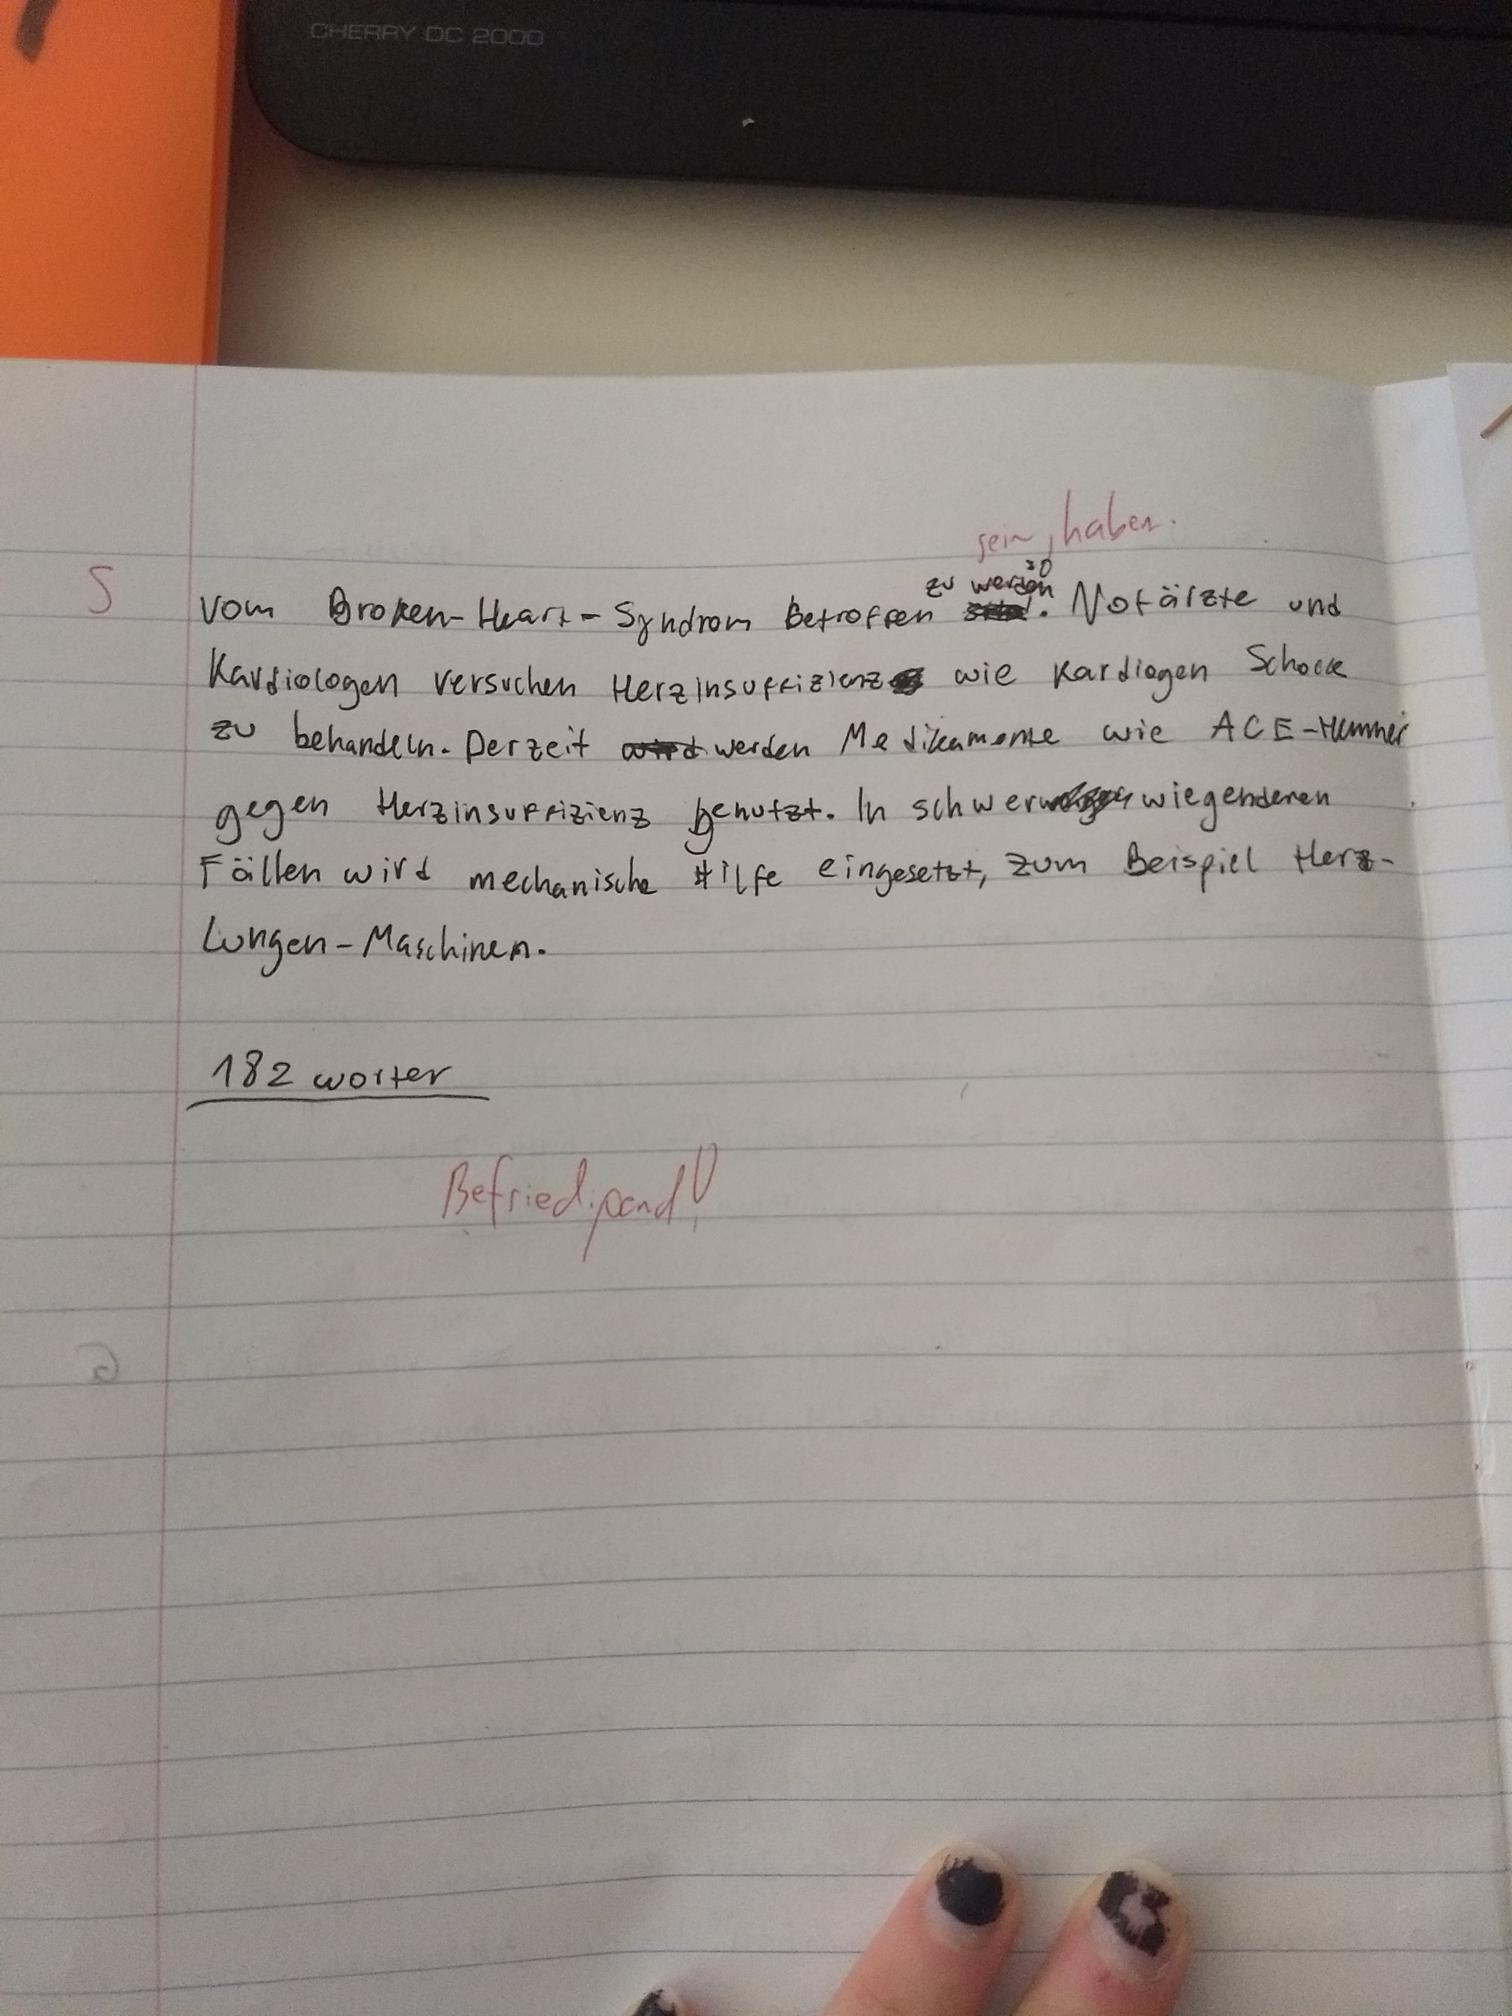 CHERRY DC 2000
sein, haben.
zu werden
S vom Broken-Heart-Syndrom Betroffen . Notärzte und
Kardiologen versuchen Herzinsuffizienz wie Kardiogen Schock
zu behandeln. Derzeit wird werden Medikamente wie ACE-Hemmer
gegen Herzinsuffizienz benutzt. In schwerwiegenderen
Fällen wird mechanische Hilfe eingesetzt, zum Beispiel Herz-
Lungen-Maschinen.
182 worter
Befriedigend!